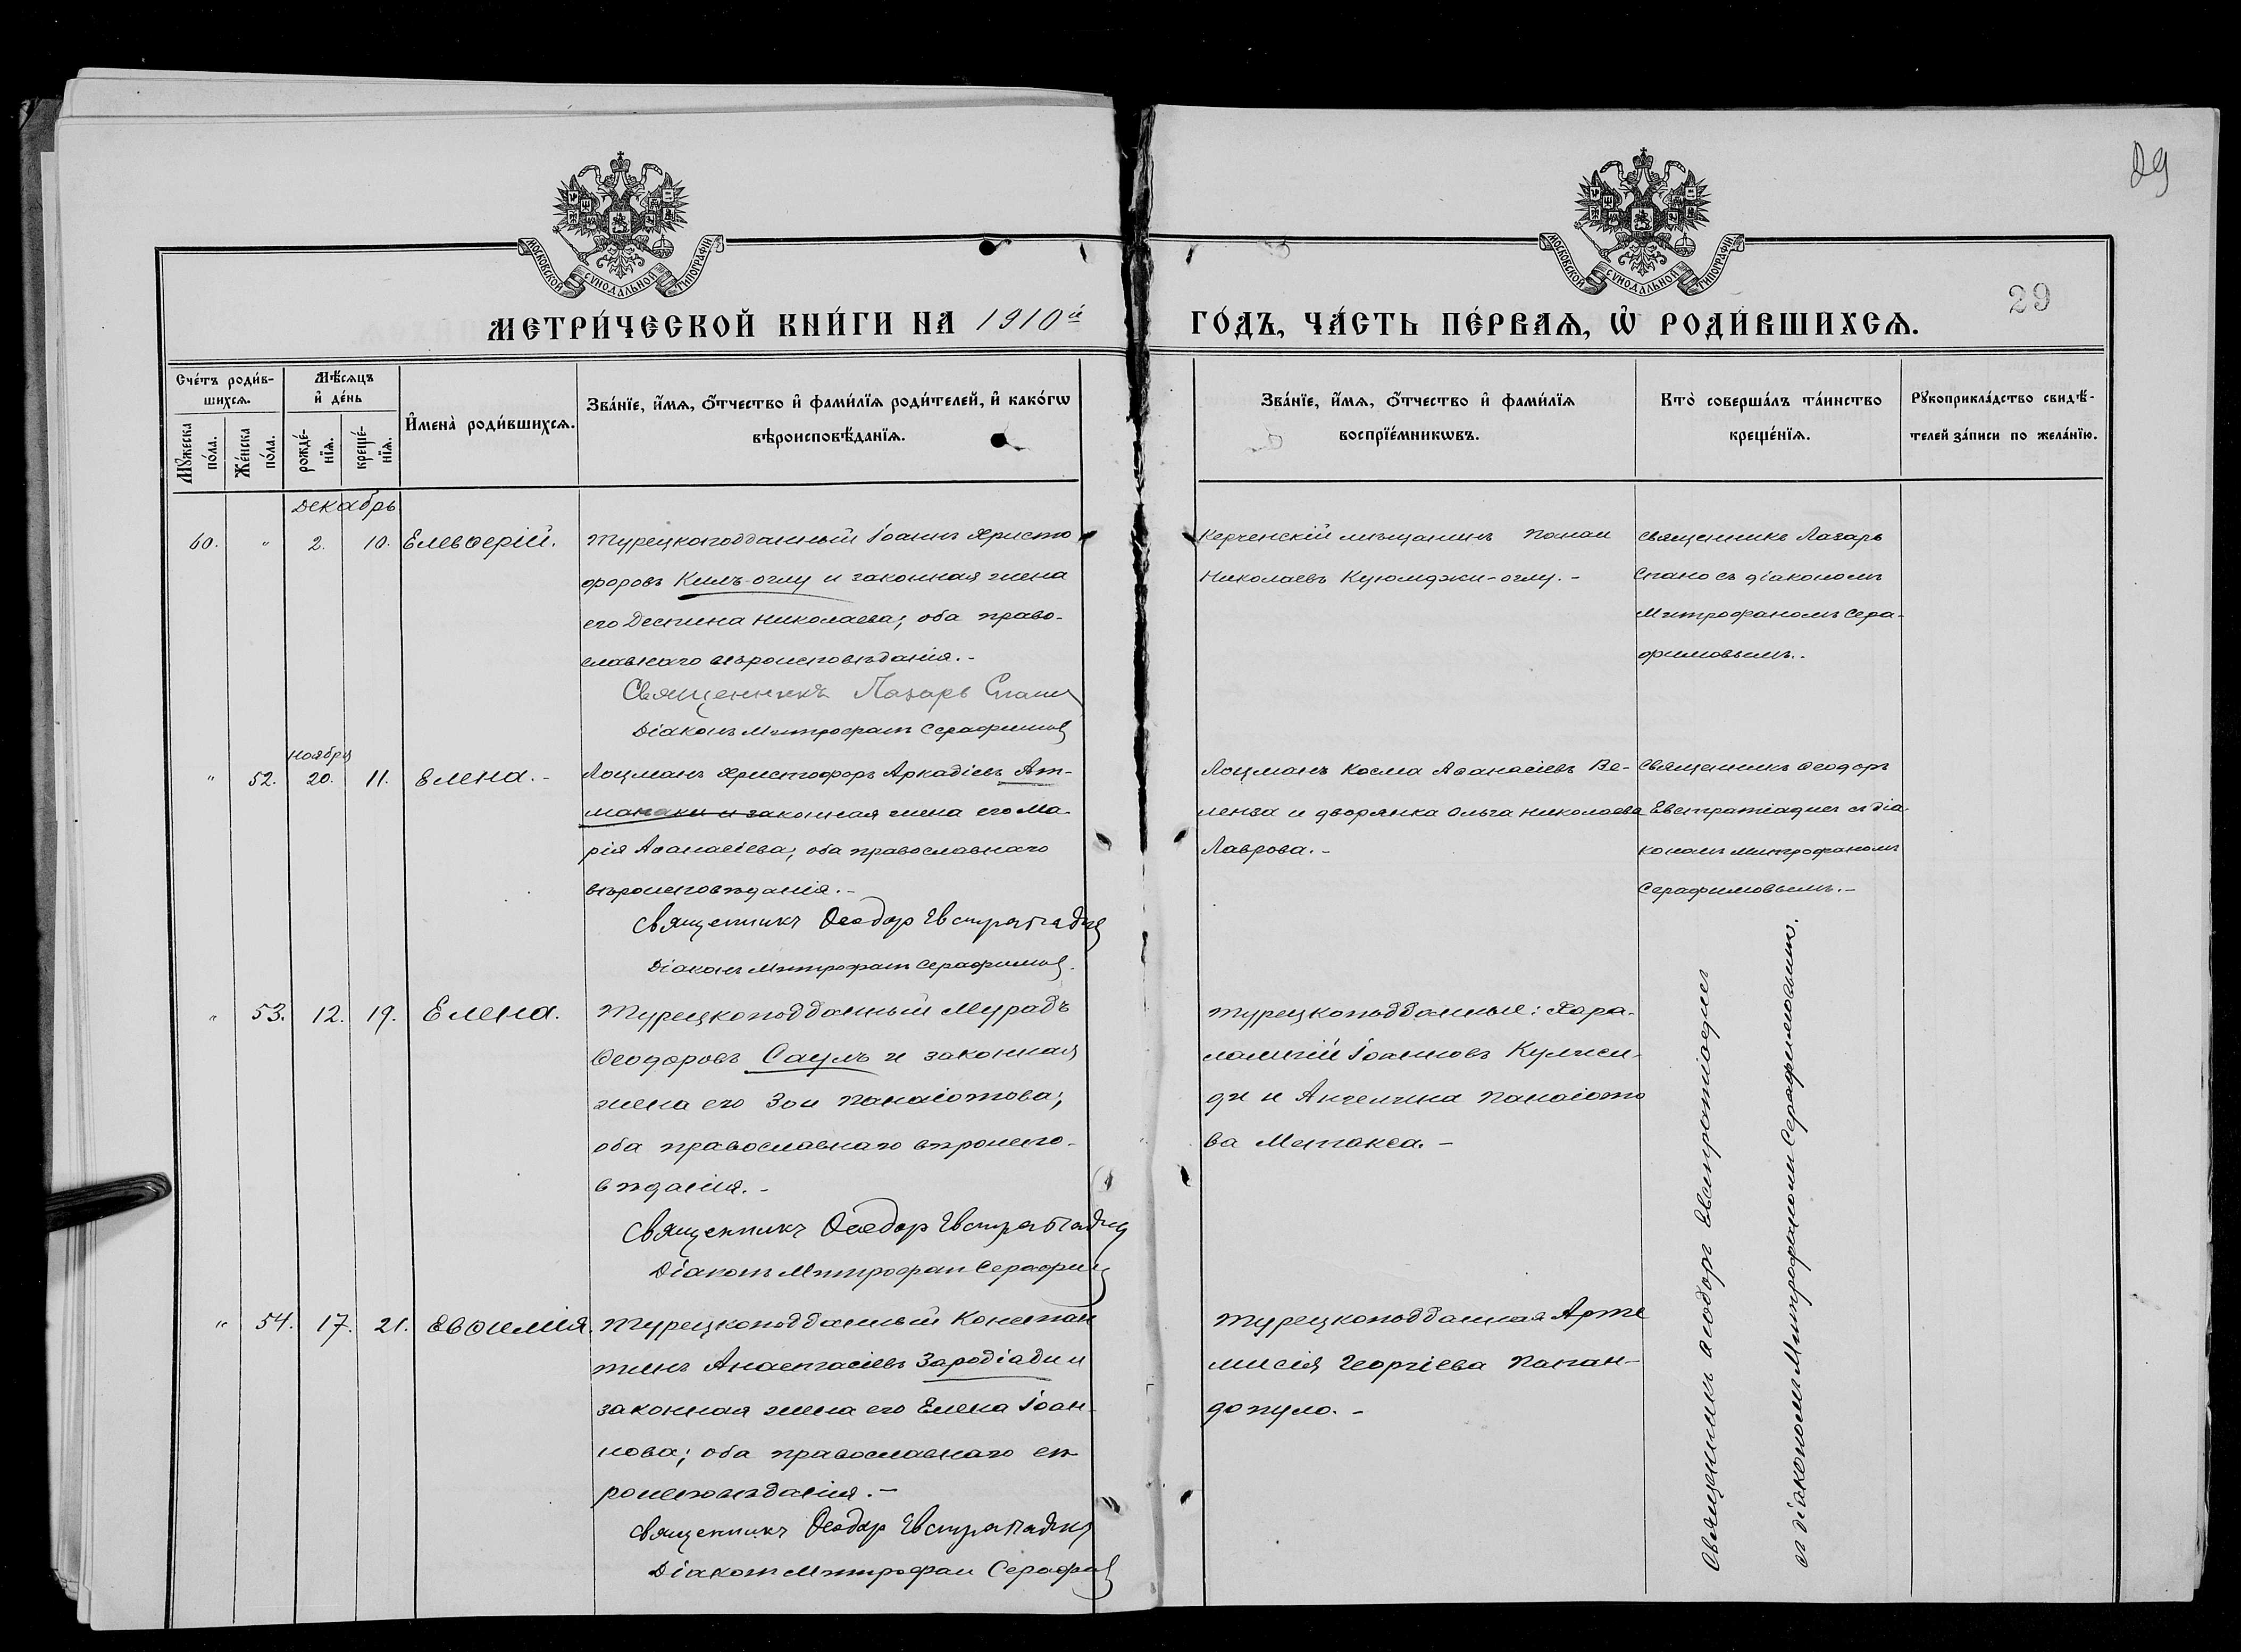 29
МОСКОВСКОЙ СѴНОДАЛЬНОЙ ТИПОГРАФІИ
МОСКОВСКОЙ СѴНОДАЛЬНОЙ ТИПОГРАФІИ
29
МЕТРИ́ЧЕСКОЙ КНИ́ГИ НА 1910й ГО́ДЪ, ЧА́СТЬ ПЕ́РВАѦ, Ѡ РОДИ́ВШИХСѦ.
Сче́тъ роди́в-
шихсѧ.
Мѣ́сѧцъ
и҆ де́нь
И҆мена̀ роди́вшихсѧ.
Зва́нїе, и҆́мѧ, ѻ҆́тчество и҆ фами́лїѧ роди́телей, и҆ како́гѡ
вѣроисповѣ́данїѧ.
Зва́нїе, и҆́мѧ, ѻ҆́тчество и҆ фами́лїѧ
воспрїе́мникѡвъ.
Кто̀ соверша́лъ та́инство
креще́нїѧ.
Рꙋкоприкла́дство свидѣ́-
телей за́писи по жела́нїю.
Мꙋ́жеска
по́ла.
Же́нска
по́ла.
рожде́-
нїѧ.
креще́-
нїѧ.
Декабрь
60. " 2. 10. Елевѳерій. Турецкоподданный Іоаннъ Христо
форовъ Килъ-оглу и законная жена
его Деспина Николаева; оба право-
славнаго вѣроисповѣданія.-
Священникъ Лазарь Спано
Діаконъ Митрофанъ Серафимов
Керченскій мѣщанинъ Панаи
Николаевъ Куюмджи-оглу.-
Священникъ Лазарь
Спано съ діакономъ
Митрофаномъ Сера-
фимовымъ.-
Ноября
" 52. 20. 11. Елена.- Лоцманъ Христофоръ Аркадіевъ Ат-
манаки и законная жена его Ма-
рія Аѳанасіева; оба православнаго
вѣроисповѣданія.-
Священникъ Ѳеодор Евстратіадис
Діаконъ Митрофанъ Серафимов.
Лоцманъ Косма Аѳанасіевъ Ве-
ленза и дворянка Ольга Николаева
Лаврова.-
Священникъ Ѳеодоръ
Евстратіадисъ съ діа-
кономъ Митрофаномъ
Серафимовымъ.-
" 53. 12. 19. Елена. Турецкоподданный Мурадъ
Ѳеодоровъ Саулъ и законная
жена его Зои Панаіотова;
оба православнаго вѣроиспо-
вѣданія.-
Священникъ Ѳеодор Евстратіадис
Діаконъ Митрофан Серафим
Турецкоподданные: Хара-
лампій Іоанновъ
ди и Ангелина Панаіото
ва Метакса.-
Священникъ Ѳеодоръ Евстратіадисъ
съ діакономъ Митрофаномъ Серафимовымъ.
" 54. 17. 21. Евѳимія. Турецкоподданный Констан
тинъ Анастасіевъ Зародіади и
законная жена его Елена Іоан-
нова; оба православнаго вѣ
роисповѣданія.-
Священникъ Ѳеодор Евстратіадис
Діаконъ Митрофан Серафим
Турецкоподданная Арте
мисія Георгіева Папан-
допуло.-